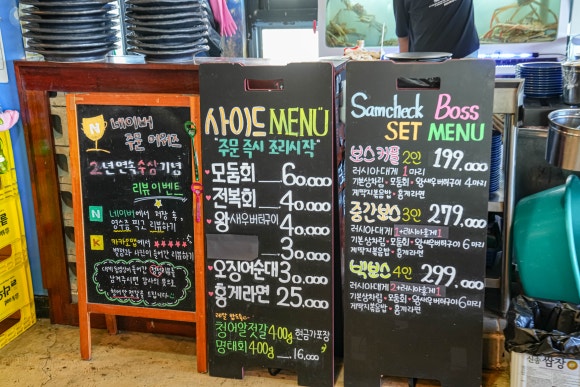 네이버
주문 어워즈
2년연속 수상 기념
리뷰이벤트
N 네이버에서 저장 후,
영수증 찍고 리뷰하기
K 카카오맵에서 ★★★★★
별점과 사진이 들어간 리뷰하기
남겨주시면 감사의 뜻으로
사이드 MENU
"주문 즉시 조리시작"
모둠회 60,000
전복회 40,000
왕새우버터구이 40,000
30,000
오징어순대 30,000
홍게라면 25,000
청어알젓갈 400g 현금가포장
명태회 400g 16,000
Samcheck Boss
SET MENU
보스커플 2인 199,000
러시아대게 1마리
기본상차림 · 모둠회 · 왕새우버터구이 4마리
게딱지볶음밥 · 홍게라면
중간보스 3인 279,000
러시아대게 1+러시아홍게1
기본상차림 · 모둠회 · 왕새우버터구이 6마리
게딱지볶음밥 · 홍게라면
빅보스 4인 299,000
러시아대게 2+러시아홍게1
기본상차림 · 모둠회 · 왕새우버터구이 8마리
게딱지볶음밥 · 홍게라면